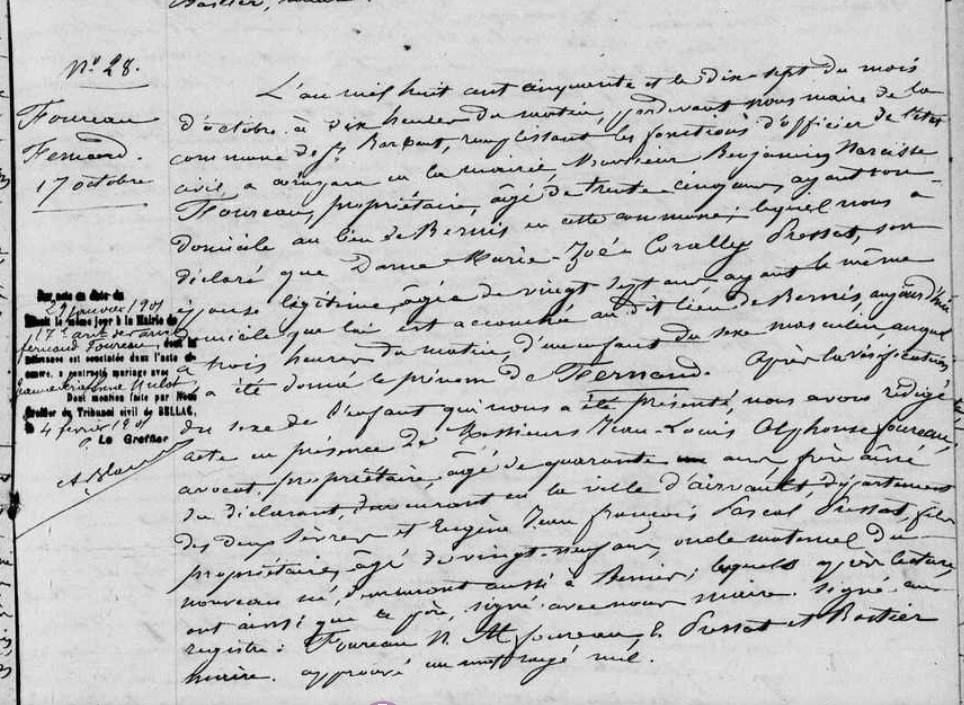 Bastier, maire.
N° 28.
Foureau
Fernand.
17 octobre
Par acte en date du
29 janvier 1901
le même jour à la Mairie du
17e arrt de Paris
fernand Foureau, dont la
naissance est constatée dans l'acte ci-
contre, a contracté mariage avec
Dont mention faite par Nous
Greffier du Tribunal civil de BELLAC,
le 4 février 1901
Le Greffier
L'an mil huit cent cinquante et le dix-sept du mois
d'octobre à dix heures du matin, pardevant nous maire de la
commune de St Barbant, remplissant les fonctions d'officier de l'état
civil, a comparu en la mairie, Monsieur Benjamin Narcisse
Foureau, propriétaire, âgé de trente-cinq ans, ayant son
domicile au lieu de Bernis en cette commune; lequel nous a
déclaré que Dame Marie-Zoé Corally Pressat, son
épouse légitime, âgée de vingt sept ans ayant le même
domicile que lui est accouchée au dit lieu de Bernis, aujourd'hui
à trois heures du matin, d'un enfant du sexe masculin auquel
il a été donné le prénom de Fernand. Après la vérification
du sexe de l'enfant qui nous a été présenté, nous avons rédigé
acte en présence de Messieurs Jean-Louis Alphonse foureau,
avocat, propriétaire, âgé de quarante ans frère aîné
du déclarant, demeurant en la ville d'airvault, département
des deux Sèvres et Eugène Jean françois Pascal Pressat, fils
propriétaire, âgé de vingt-neuf ans, oncle maternel du
nouveau né, demeurant aussi à Bernis; lesquels après lecture,
ont ainsi que le père, signé avec nous maire. Signé au
registre: Foureau N. A foureau, E. Pressat et Bastier
maire. approuvé un mot rayé nul.